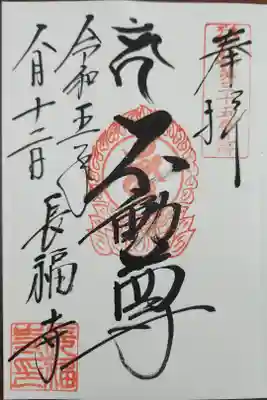 奉拝
不動尊
長福寺
令和五年
八月十二日